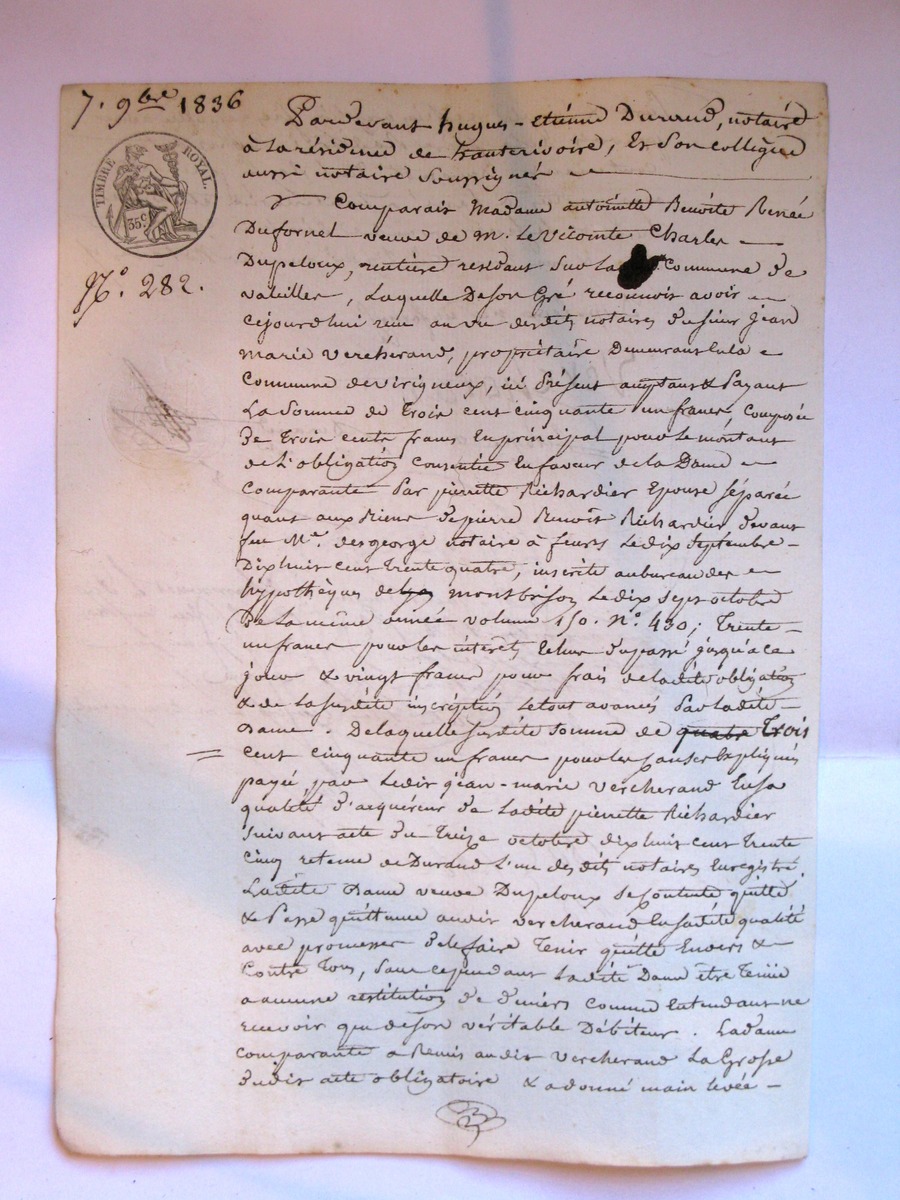 7. 9bre 1836
TIMBRE ROYAL.
35 c
N°. 282.
Pardevant hugues-etiénne Durand, notaire
à la résidence de hauterivoire, Et Son collègue
aussi notaire Soussignés
Comparait Madame antoinette Benoite Renée
Dufornel veuve de M. Le Vicomte Charles
Dupeloux, rentière résidant Sur La Commune de
valeilles, Laquelle De son Gré reconnoit avoir
cejourdhui reçu au vu desdits notaires du sieur jean
marie vercherand, propriétaire Demeurant En la
Commune de virigneux, ici Présent acceptant & Payant
La Somme de Trois cent cinquante un francs, Composée
de Trois cents francs En principal pour Le montant
de L'obligation Consentie En faveur de la Dame
Comparante Par pierrette Richardier Epouse séparée
quant aux Biens de pierre Benoit Richardier devant
feu Me. desgeorge notaire à feurs Le dix Septembre
Dix huit cent Trente quatre, inscrite au bureau des
hypothèques de montbrison Le dix sept octobre
De La même année volume 150. n°. 430; Trente
un francs pour les intérêts Echus du passé jusqu'à ce
jour & vingt francs pour frais de ladite obligation
& de La susdite inscription Le tout avancés Par Ladite
Dame. De laquelle susdite somme de quatre Trois
cent cinquante un francs pour les causes Expliquées
payée par Ledit jean-marie vercherand En sa
qualité d'acquéreur de Ladite pierrette Richardier
suivant acte du Treize octobre dix huit cent Trente
cinq retenu de Durand L'un desdits notaires Enregistré.
Ladite Dame veuve Dupeloux se contente quitte
& Passe quittance audit vercherand En sadite qualité
avec promesse de le faire Tenir quitte Envers &
Contre Tous, Sans cependant Ladite Dame être Tenue
à aucune restitution de deniers comme Entendant ne
recevoir que de son véritable Débiteur. La dame
comparante a Remis audit vercherand La Grosse
dudit acte obligatoire & a donné main levée